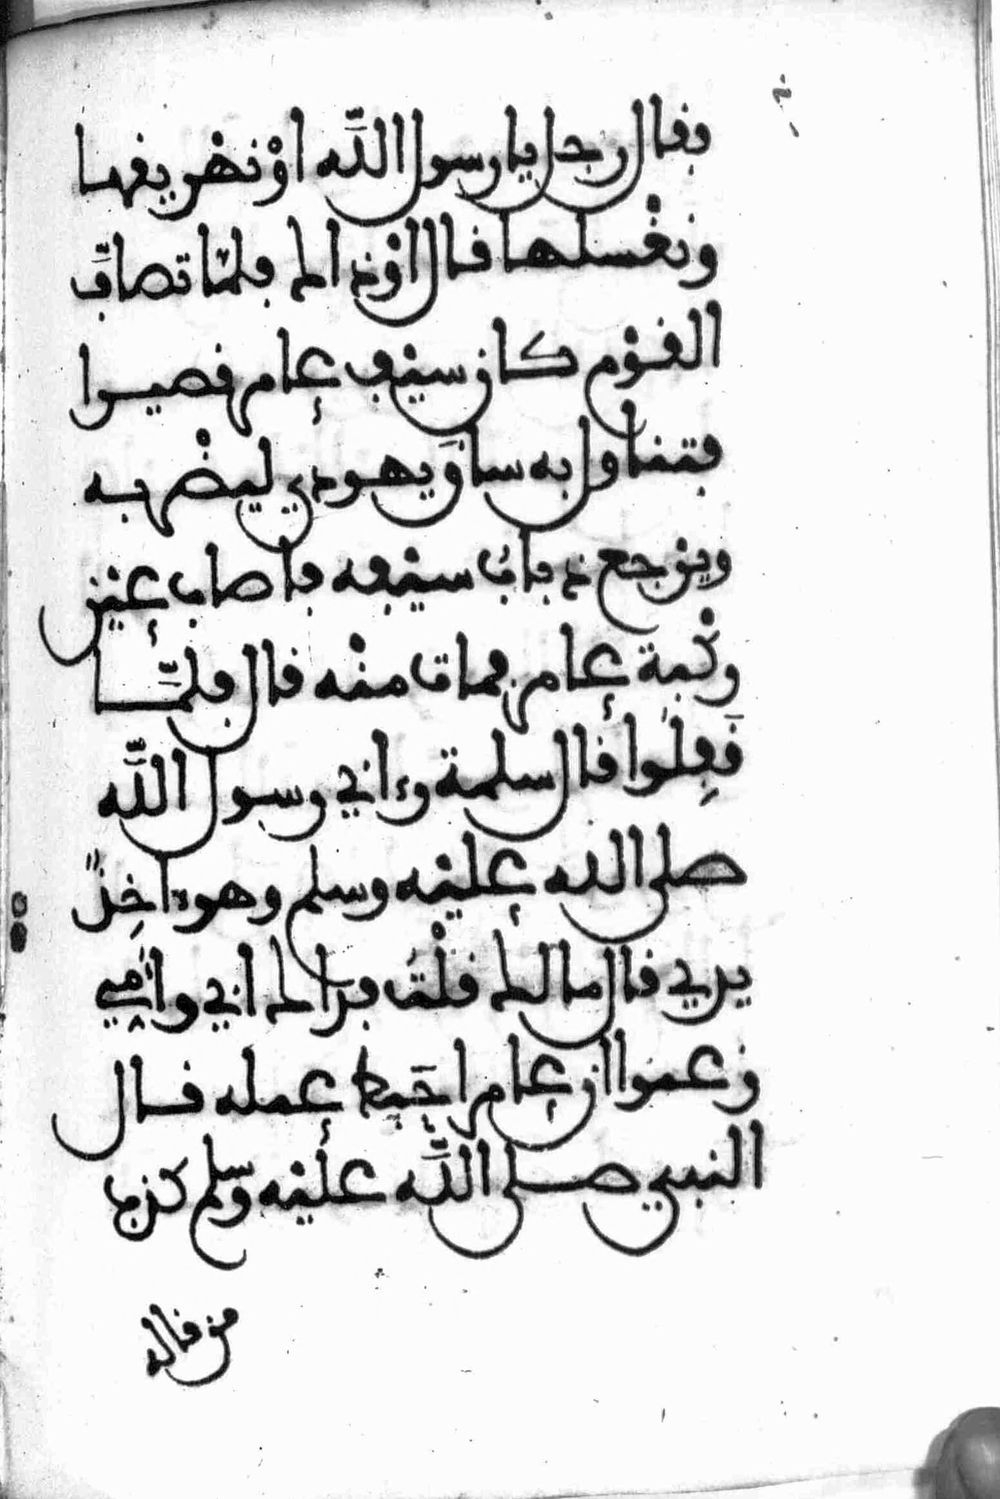 فقال رجل يا رسول الله اوْ نهْريفها
ونغْسلها قال اوْ ذالك فلمّا تصافّ
القوْم كان سيْف عامر قصيرا
فتناول به ساقَ يهودي ليضْربه
ويرْجع ذبابُ سيْفه فاصاب عيْن
رُكْبة عامر فمات منْه قال فلمّا
قَفِلُوا قال سلمة رءاني رسول الله
صلى الله عليْه وسلم وهو ءاخِذٌ
بيدي قال مالك قلْتُ فداك ابي وأُمّي
زعموا ان عامرا حَبِطَ عمله قال
النبي صلى الله عليْه وسلم كذب
من قاله